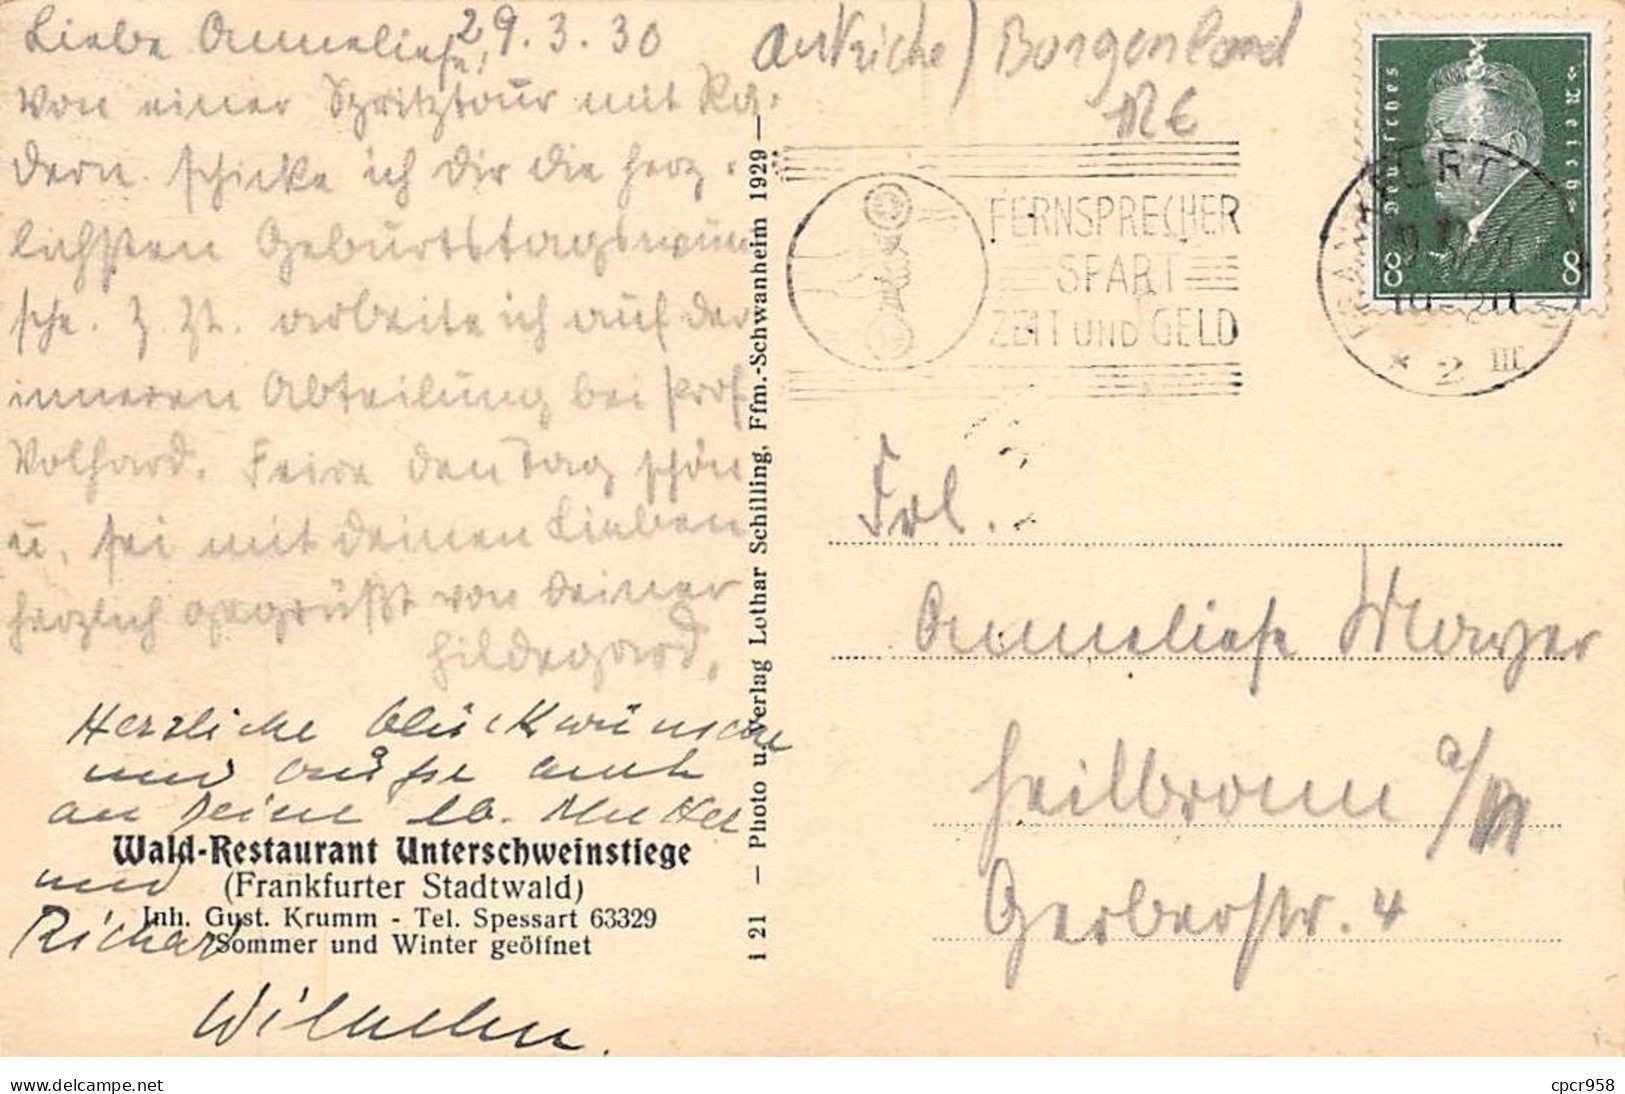 29.3.30
Liebe Anneliese!
Von einer Spritztour mit Ra-
dern schicke ich dir die herz-
lichsten Geburtstagswün
sche. Z. Zt. arbeite ich auf der
inneren Abteilung bei Prof
Volhard. Feire den Tag schön
u. sei mit deinen Lieben
herzlich gegrüßt von deiner
Hildegard.
Herzliche Glückwünsche
und Grüße auch
an Deine lb. Mutter
und
Richard
Wilhelm.
Wald-Restaurant Unterschweinstiege
(Frankfurter Stadtwald)
Inh. Gust. Krumm - Tel. Spessart 63329
Sommer und Winter geöffnet
i 21 — Photo u. Verlag Lothar Schilling, Ffm.-Schwanheim 1929 —
Burgenland
12 €
FERNSPRECHER
SPART
ZEIT UND GELD
Deutsches Reich
8 8
FRANKFURT
* 2 III
Frl.
Anneliese Mayer
Heilbronn a/N
Gerberstr. 4
cpcr958